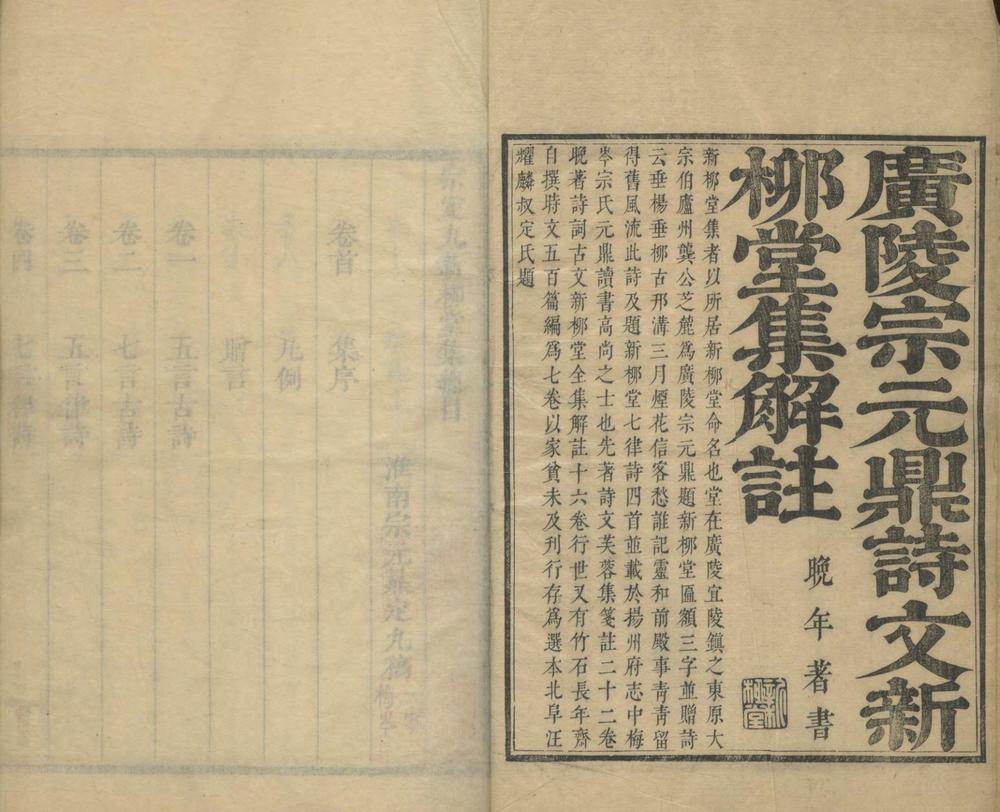 廣陵宗元鼎詩文新
柳堂集解註
晚年著書
新柳堂
新柳堂集者以所居新柳堂命名也堂在廣陵宜陵鎮之東原大
宗伯廬州龔公芝麓爲廣陵宗元鼎題新柳堂匾額三字並贈詩
云垂楊垂柳古邗溝三月煙花信客愁誰記靈和前殿事青青留
得舊風流此詩及題新柳堂七律詩四首並載於揚州府志中梅
岑宗氏元鼎讀書高尚之士也先著詩文芙蓉集箋註二十二卷
晚著詩詞古文新柳堂全集解註十六卷行世又有竹石長年齋
自撰時文五百篇編爲七卷以家貧未及刊行存爲選本北阜汪
耀麟叔定氏題
淮南宗元鼎定九稿
卷首 集序
凡例
贈言
卷一 五言古詩
卷二 七言古詩
卷三 五言律詩
卷四 七言律詩